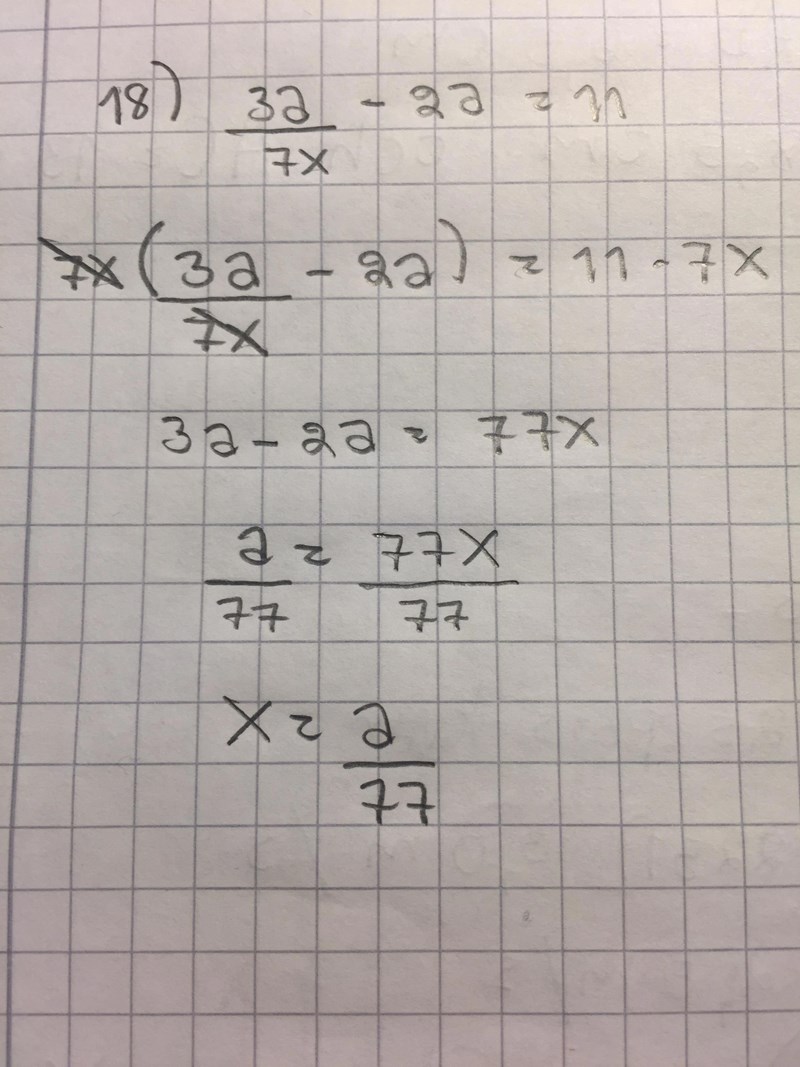 18) 3a/7x - 2a = 11
7x(3a/7x - 2a) = 11 · 7x
3a - 2a = 77x
a/77 = 77x/77
x = a/77